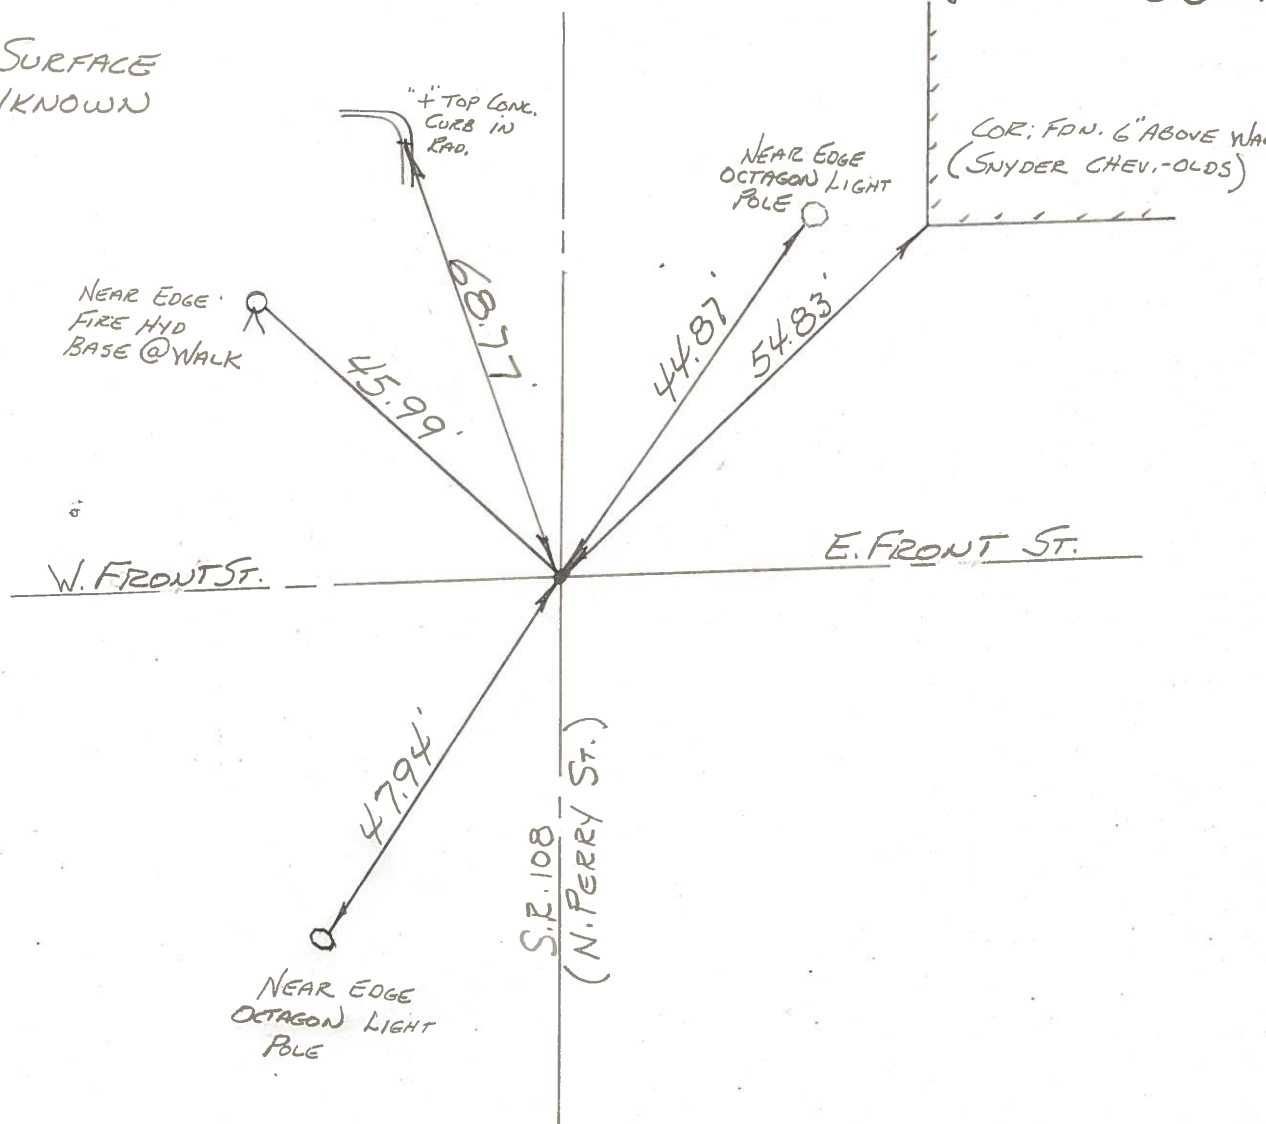 SURFACE
KNOWN
"+" TOP CONC.
CURB IN
RAD.
NEAR EDGE
OCTAGON LIGHT
POLE
COR. FDN. 6" ABOVE
(SNYDER CHEV.-OLDS)
NEAR EDGE
FIRE HYD
BASE @ WALK
68.77'
45.99'
44.87'
54.83'
W. FRONT ST.
E. FRONT ST.
47.94'
S.R. 108
(N. PERRY ST.)
NEAR EDGE
OCTAGON LIGHT
POLE